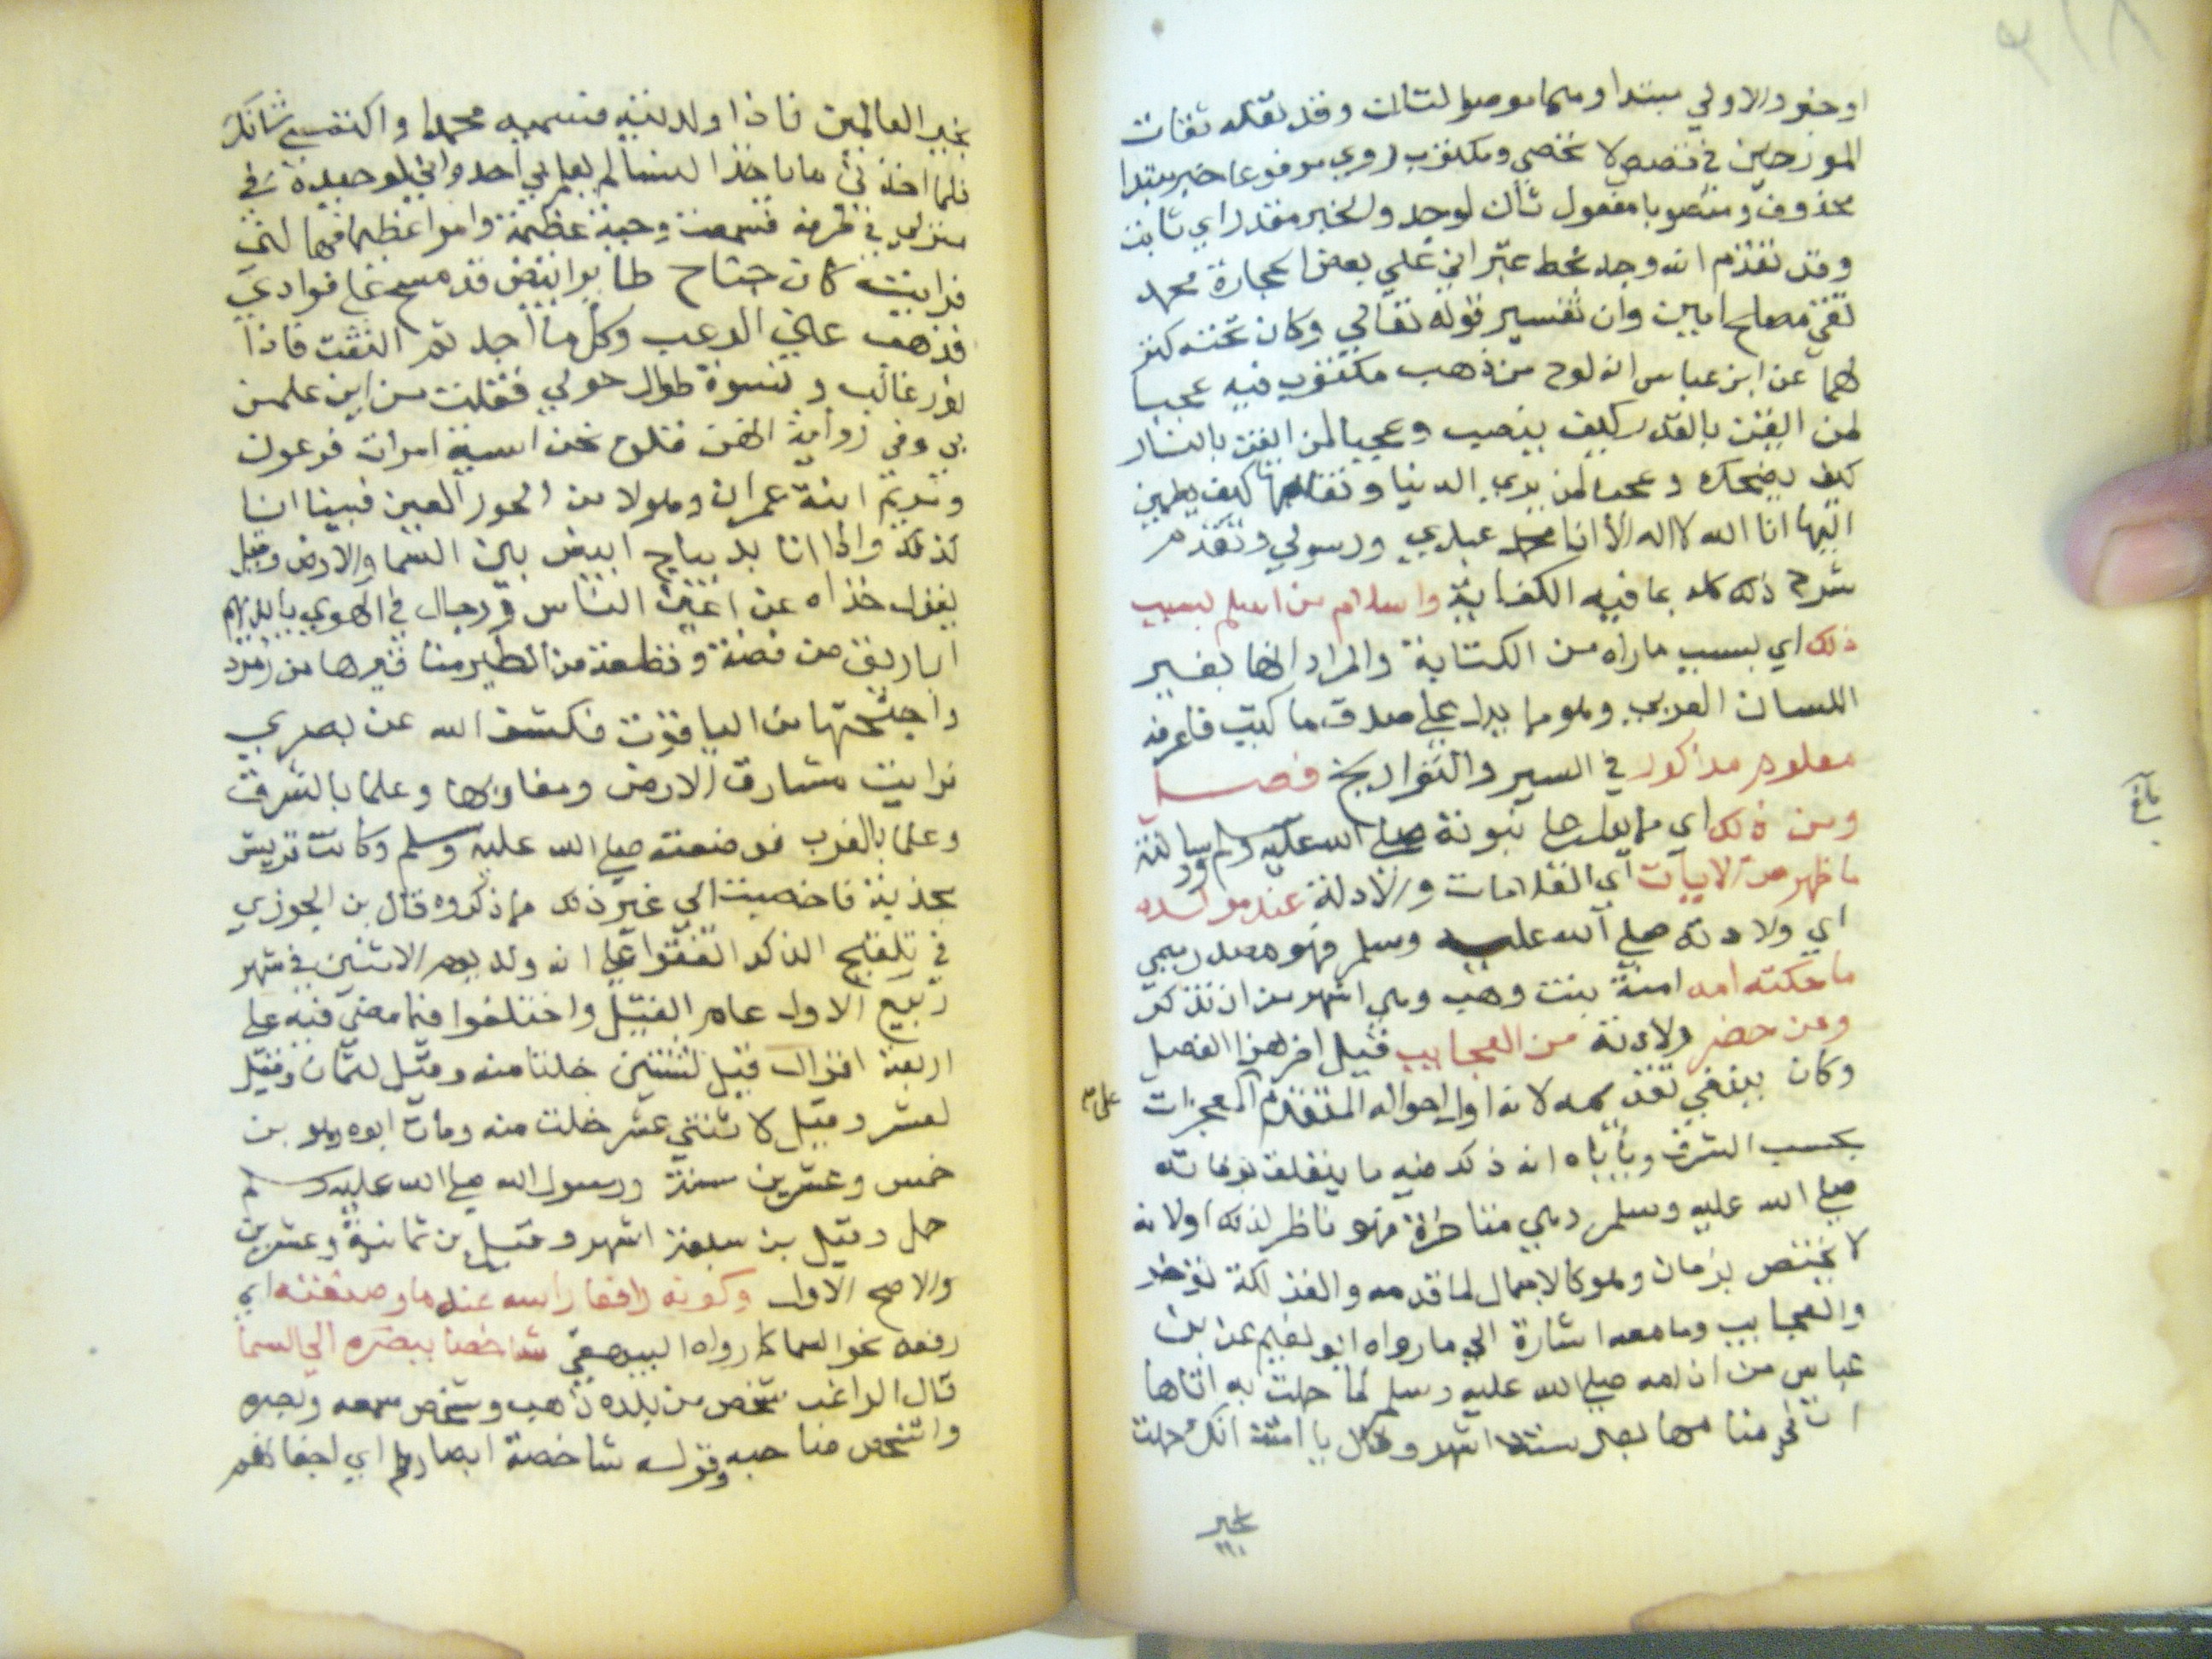 ٢١٨
او حنو دالاولي مبتدا وهما موصولتان وقد نقله ثقات
المورخين في قصص لا تحصي ومكتوب روي مرفوعا خبر مبتدا
محذوف ومنصوبا مفعول ثان لوجد والخبر مقدر اي ثابت
وقد تقدم انه وجد بخط عبراني علي بعض الحجارة محمد
تقي مصلح امين وان تفسير قوله تعالي وكان تحته كنز
لهما عن ابن عباس انه لوح من ذهب مكتوب فيه عجبا
لمن ايقن بالقدر كيف ينصب وعجبا لمن ايقن بالنار
كيف يضحك وعجبا لمن يري الدنيا وتقلبها كيف يطمين
اليها انا الله لا اله الا انا محمد عبدي ورسولي وتقدم
شرح ذلك كله بما فيه الكفاية واسلام من اسلم بسبب
ذلك اي بسبب ماراه من الكتابة والمراد انها بغير
اللسان العربي وهو مما يدل علي صدق ما كتب فاعرفه
معلوم مذكور في السير والتواريخ فصل
ومن ذلك اي مما يدل علي نبوته صلي الله عليه وسلم ورسالته
ما ظهر من الايات اي العلامات والادلة عند مولده
اي ولادته صلي الله عليه وسلم فهو مصدر ميمي
ما حكته امه امنة بنت وهب وهي اشهر من ان تذكر
ومن حضر ولادته من العجايب قيل اخر هذا الفصل
وكان ينبغي تقديمه لانه اول احواله المتقدم المعجزات
علي م
بحسب الشرف وياباه انه ذكر فيه ما يتعلق بوفاته
صلي الله عليه وسلم وهي متاخرة فهو ناظر لذلك اولانه
لا يختص بزمان وهو كالاجمال لما قدمه والفذلكة توخر
والعجايب ومامعه اشارة الي مارواه ابو نعيم عن بن
عباس من ان امه صلي الله عليه وسلم لما حملت به اتاها
ات في منامها بعد ستة اشهر وقال يا امنة انك حملت
بخير
بخير العالمين فاذا ولدتيه فسميه محمدا واكتمي شانك
فلما اخذني ما ياخذ النسا لم يعلم بي احد واني لوحيدة في
منزلي في طرفه فسمعت وجبة عظيمة وامرا عظيما فهالني
فرايت كان جناح طاير ابيض قد مسح علي فوادي
فذهب عني الرعب وكل ما اجد ثم التفت فاذا
نور غالب ونسوة طوال حولي فقلت من اين علمن
بي وفي رواية اخري فقلن نحن اسية امرات فرعون
ومريم ابنة عمران وهولا من الحور العين فبينا انا
كذلك واذا انا بديباج ابيض بين السما والارض وقيل
يقول خذاه عن اعين الناس ورجال في الهوي بايديهم
اباريق من فضة وقطعة من الطير مناقيرها من زمرد
واجنحتها من الياقوت فكشف الله عن بصري
فرايت مشارق الارض ومغاربها وعلما بالشرق
وعلما بالغرب فوضعته صلي الله عليه وسلم وكانت قريش
بجذبة فاخصبت الي غير ذلك مما ذكروه قال بن الجوزي
في تلقيح الذكر اتفقوا علي انه ولد يوم الاثنين في شهر
ربيع الاول عام الفيل واختلفوا فيما مضي فيه علي
اربعة اقوال قيل لثنتين خلتا منه وقيل لثمان وقيل
لعشر وقيل لاثنتي عشر خلت منه ومات ابوه وهو بن
خمس وعشرين سنة ورسول الله صلي الله عليه وسلم
حمل وقيل بن سبعة اشهر وقيل بن ثمانية وعشرين
والاصح الاول وكونه رافعا راسه عندما وضعته اي
رفعه نحو السما كما رواه البيهقي شاخصا ببصره الي السما
قال الراغب شخص من بلده ذهب وشخص سهمه وبصره
واشخص صاحبه وقوله شاخصة ابصارهم اي اجفانهم